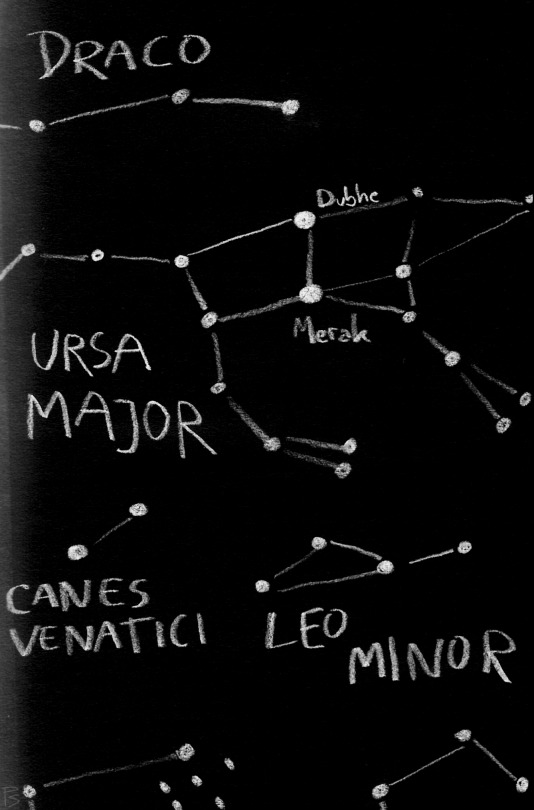 DRACO
Dubhe
Merak
URSA
MAJOR
CANES
VENATICI
LEO
MINOR